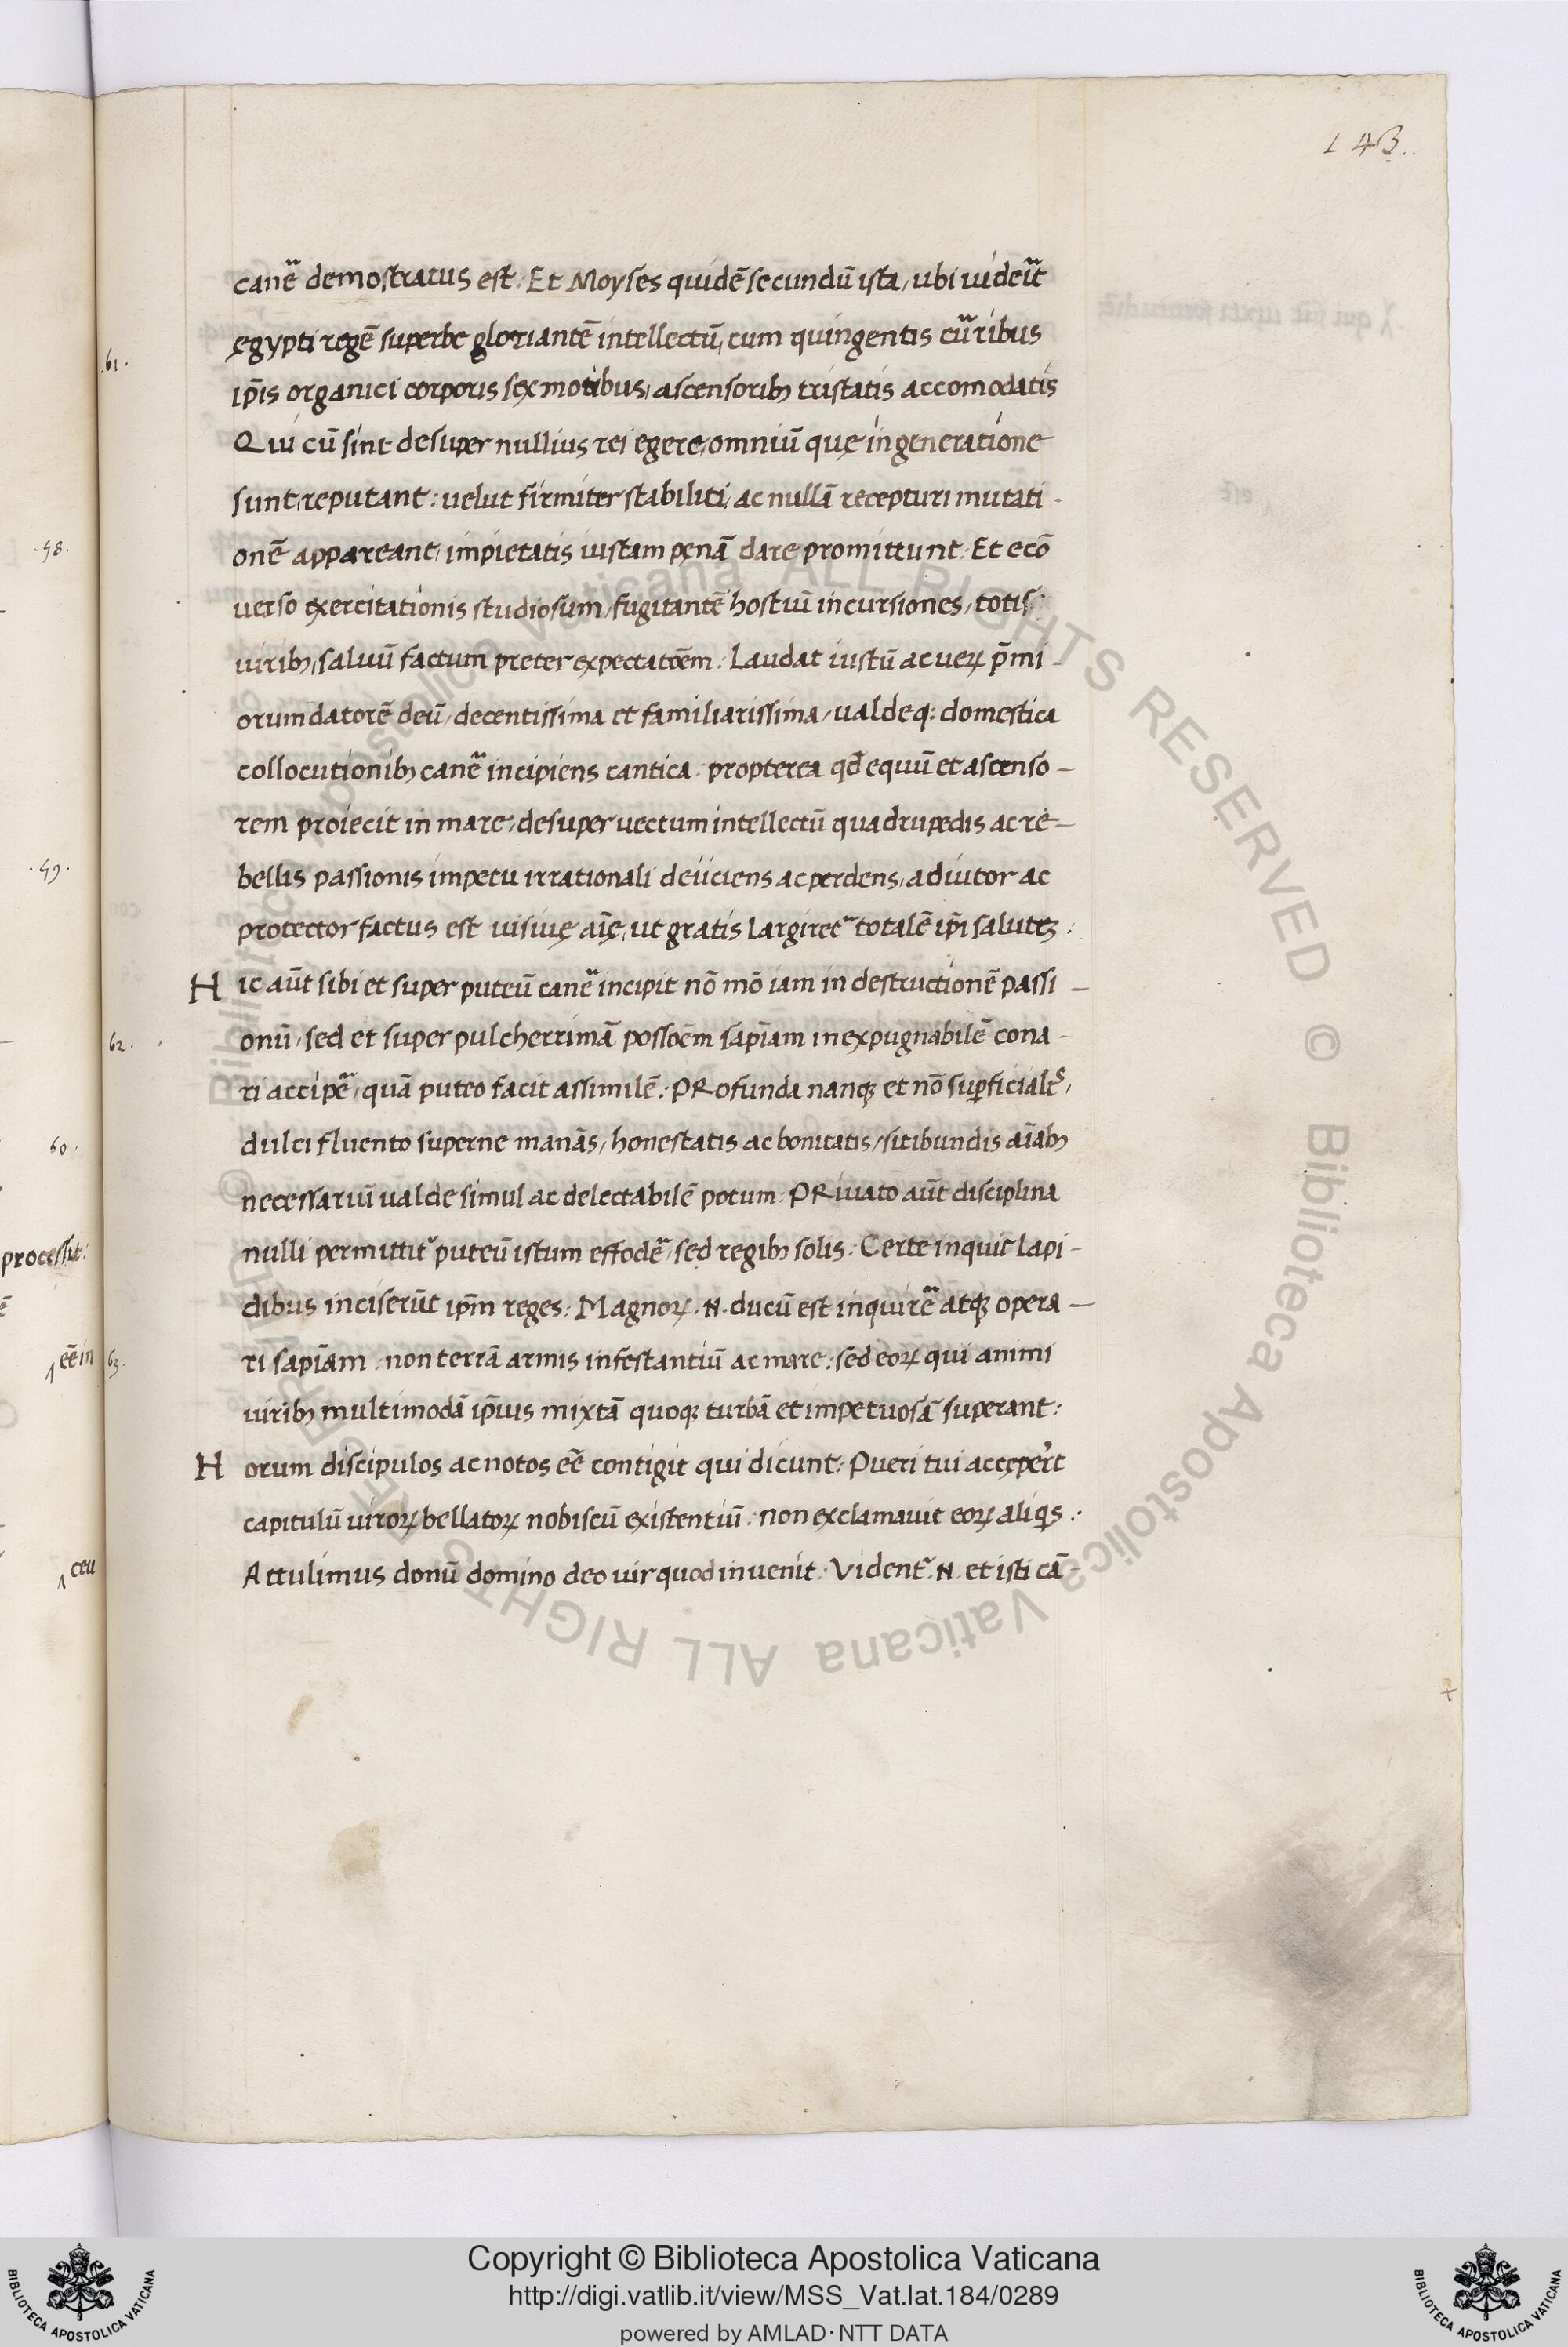 143..
canē demostratus est. Et Moyses quidē secundū ista, ubi uideīt
ęgypti regē superbe gloriantē intellectū, cum quingentis cūribus
61.
ip̄is organici corporis sex motibus, ascensorib; tristatis accomodatis
Qui cū sint desuper nullius rei egere, omniū quę in generatione
sunt, reputant: uelut firmiter stabiliti, ac nullā recepturi mutati-
.58.
onē appareant, impietatis iustam pęnā dare promittunt. Et ecō
uerso exercitationis studiosum, fugitantē hostiū incursiones, totis
uirib;, saluū factum preter expectatōem. Laudat iustū ac ueꝝ p̄mi-
orum datorē deū, decentissima et familiarissima, ualdeq: domestica
collocutionib; canē incipiens cantica. propterea qđ equū et ascenso-
rem proiecit in mare, desuper uectum intellectū quadrupedis ac re-
.59.
bellis passionis impetu irrationali deiiciens ac perdens, adiutor ac
protector factus est uisiuę aīę, ut gratis largiret totalē ip̄i salutez.
Hic aūt sibi et super puteū canē incipit nō mō iam in destructionē passi-
62.
onū, sed et super pulcherrimā possōem sapīam inexpugnabilē cona-
ri accipē, quā puteo facit assimilē. PRofunda nanqꝫ et nō suꝑficialis,
60.
dulci fluento superne manās, honestatis ac bonitatis, sitibundis aīab;
necessariū ualde simul ac delectabilē potum. PRiuato aūt disciplina
processit:
nulli permittit puteū istum effodē, sed regib; solis. Certe inquit lapi-
dibus inciserūt ip̄m reges. Magnoꝝ .N. ducū est inquirē atqꝫ opera-
eē in
63.
ri sapīam. non terrā armis infestantiū ac mare: sed eoꝝ qui animi
uirib; multimodā ip̄ius mixtā quoqꝫ turbā et impetuosā superant:
Horum discipulos ac notos eē contigit qui dicunt. Pueri tui accępert
capitulū uiroꝝ bellatoꝝ nobiscū existentiū. non exclamauit eoꝝ aliqs.
ceu
Attulimus donū domino deo uir quod inuenit. Vident .N. et isti cā-
Copyright © Biblioteca Apostolica Vaticana
http://digi.vatlib.it/view/MSS_Vat.lat.184/0289
powered by AMLAD·NTT DATA
BIBLIOTECA APOSTOLICA VATICANA
BIBLIOTECA APOSTOLICA VATICANA
© Biblioteca Apostolica Vaticana ALL RIGHTS RESERVED © Biblioteca Apostolica Vaticana ALL RIGHTS RESERVED